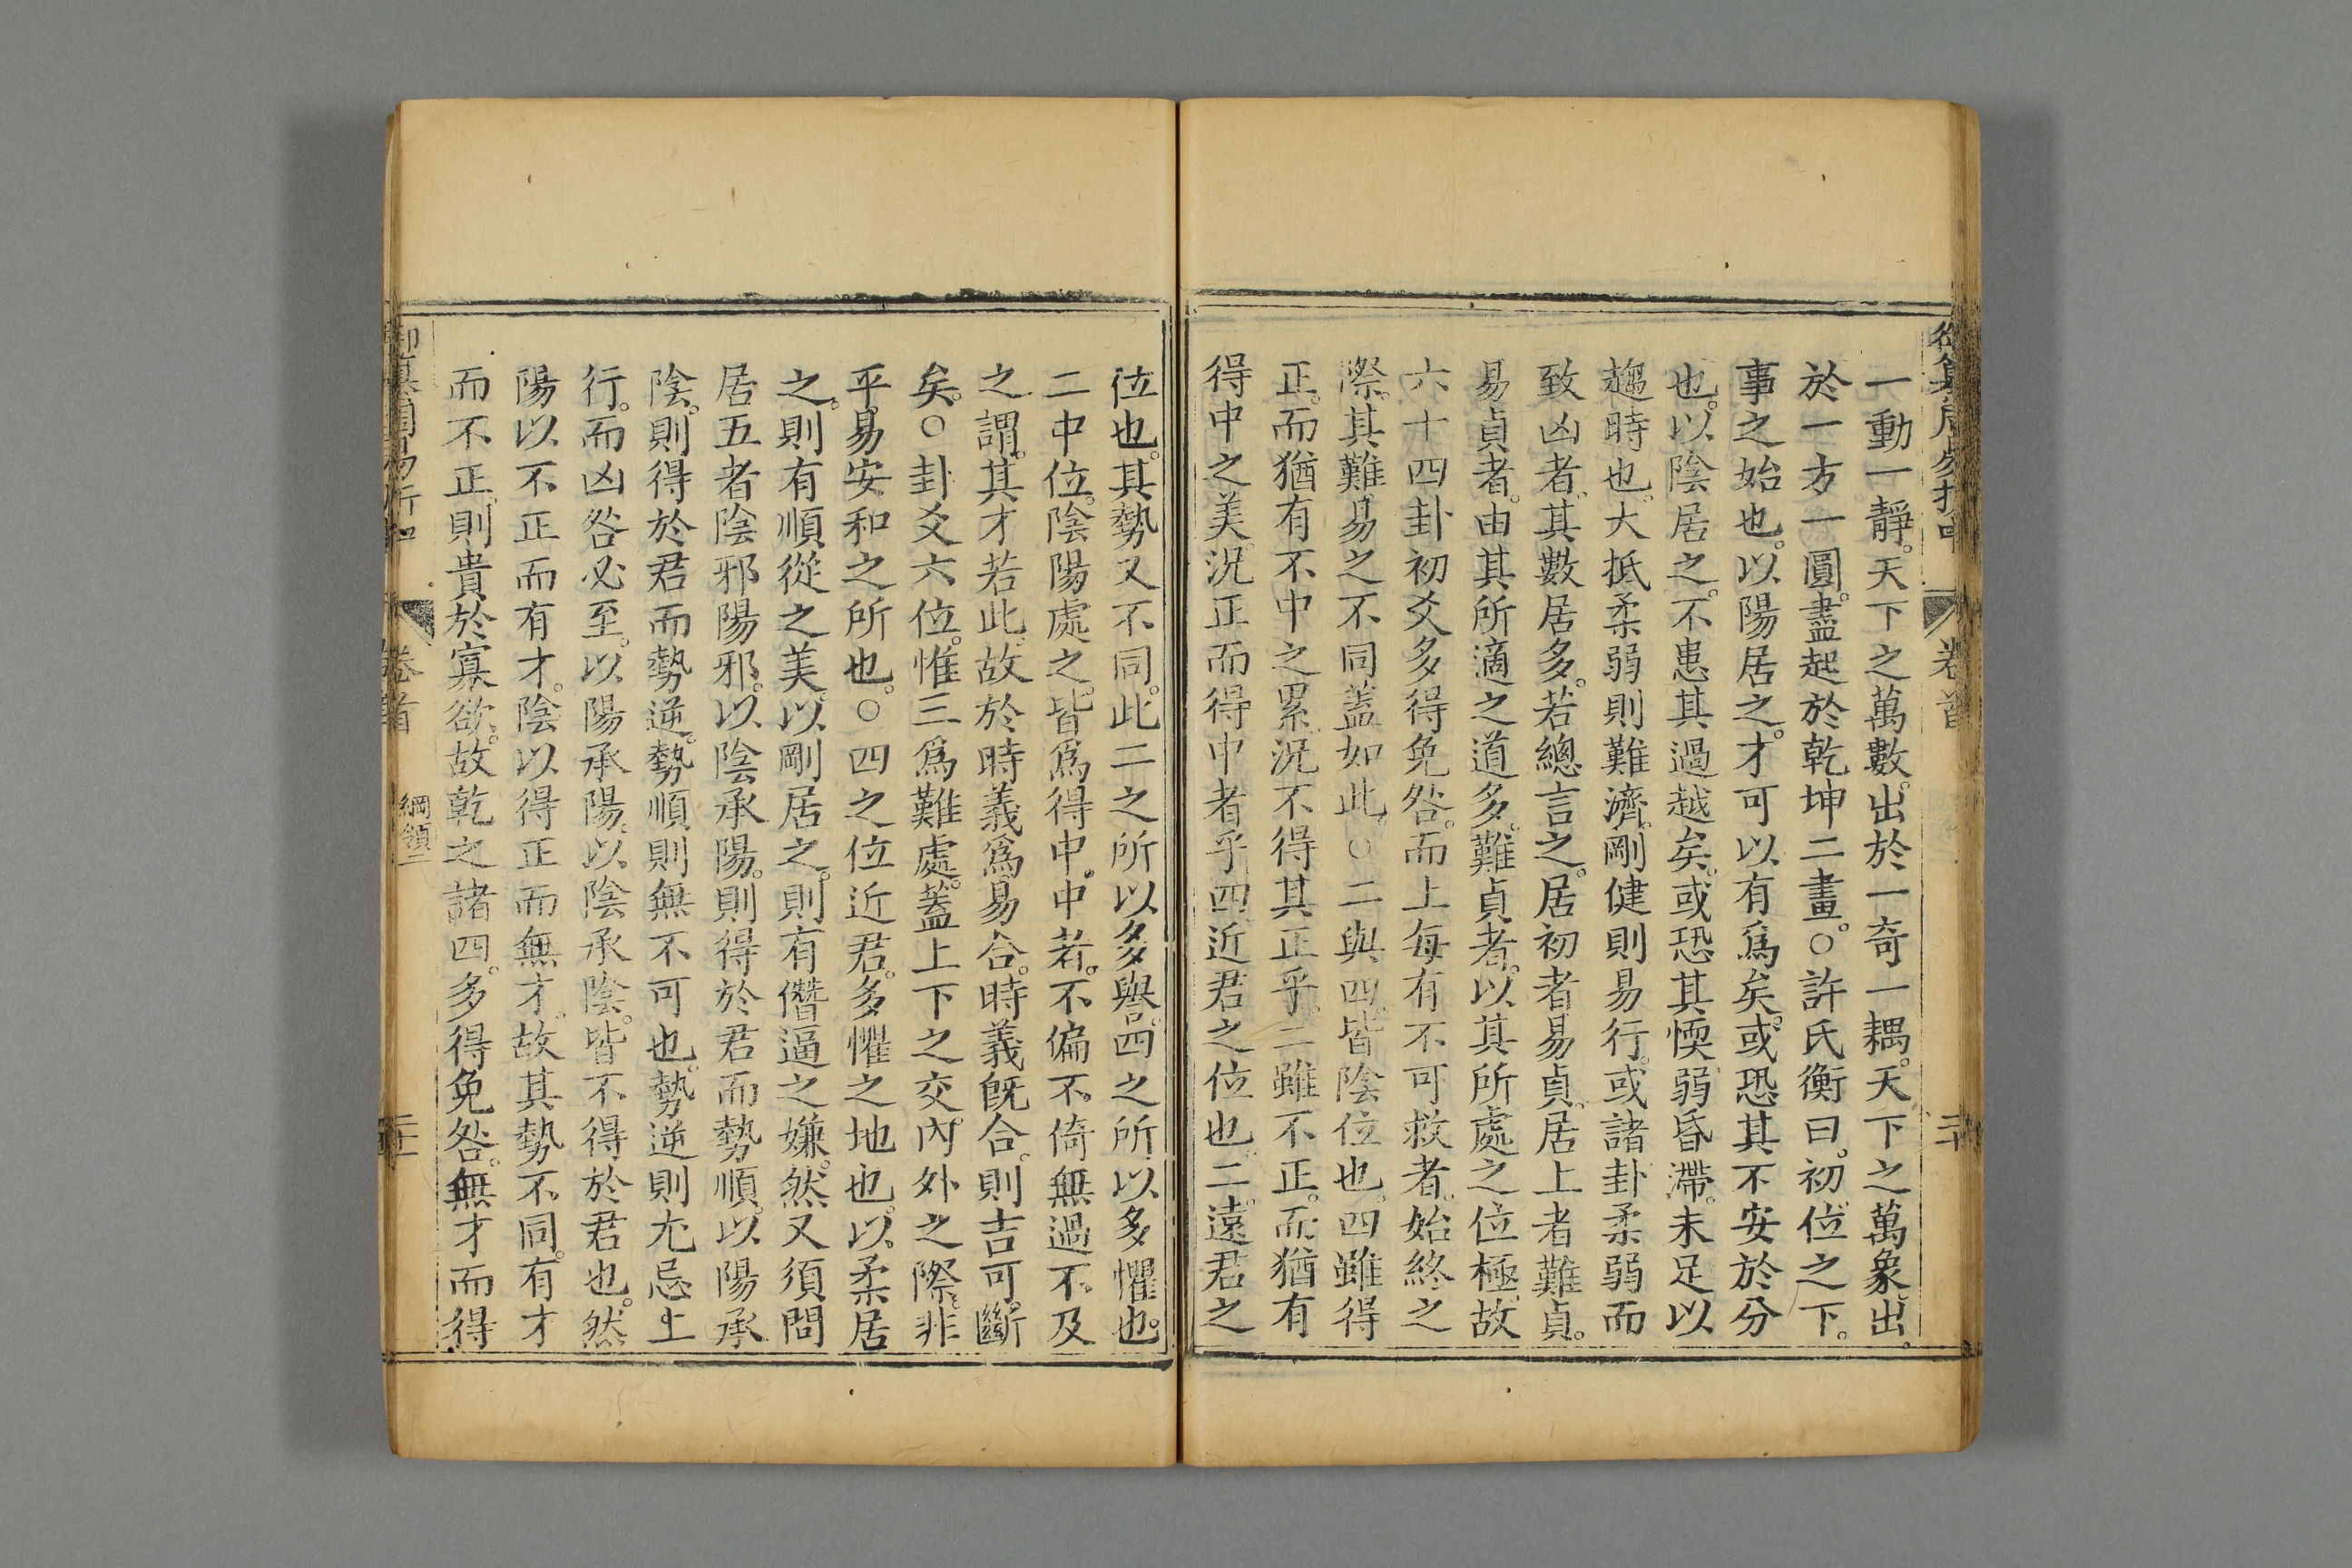 一動一靜。天下之萬數。出於一奇一耦。天下之萬象。出
於一方一圓。盡起於乾坤二畫。○許氏衡曰。初。位之下。
事之始也。以陽居之。才可以有爲矣。或恐其不安於分
也。以陰居之。不患其過越矣。或恐其愞弱昏滯。未足以
趨時也。大抵柔弱則難濟。剛健則易行。或諸卦柔弱而
致凶者。其數居多。若總言之。居初者易貞。居上者難貞。
易貞者。由其所適之道多。難貞者。以其所處之位極。故
六十四卦初爻多得免咎。而上每有不可救者。始終之
際。其難易之不同蓋如此。○二與四。皆陰位也。四雖得
正。而猶有不中之累。況不得其正乎。二雖不正。而猶有
得中之美。況正而得中者乎。四近君之位也。二遠君之
位也。其勢又不同。此二之所以多譽。四之所以多懼也。
二中位。陰陽處之。皆爲得中。中者。不偏不倚無過不及
之謂。其才若此。故於時義爲易合。時義旣合。則吉可斷
矣。○卦爻六位。惟三爲難處。蓋上下之交。內外之際。非
平易安和之所也。○四之位近君。多懼之地也。以柔居
之。則有順從之美。以剛居之。則有僭逼之嫌。然又須問
居五者陰邪陽邪。以陰承陽。則得於君而勢順。以陽承
陰。則得於君而勢逆。勢順則無不可也。勢逆則尤忌上
行。而凶咎必至。以陽承陽。以陰承陰。皆不得於君也。然
陽以不正而有才。陰以得正而無才。故其勢不同。有才
而不正。則貴於寡欲。故乾之諸四。多得免咎。無才而得
卷首
綱領二